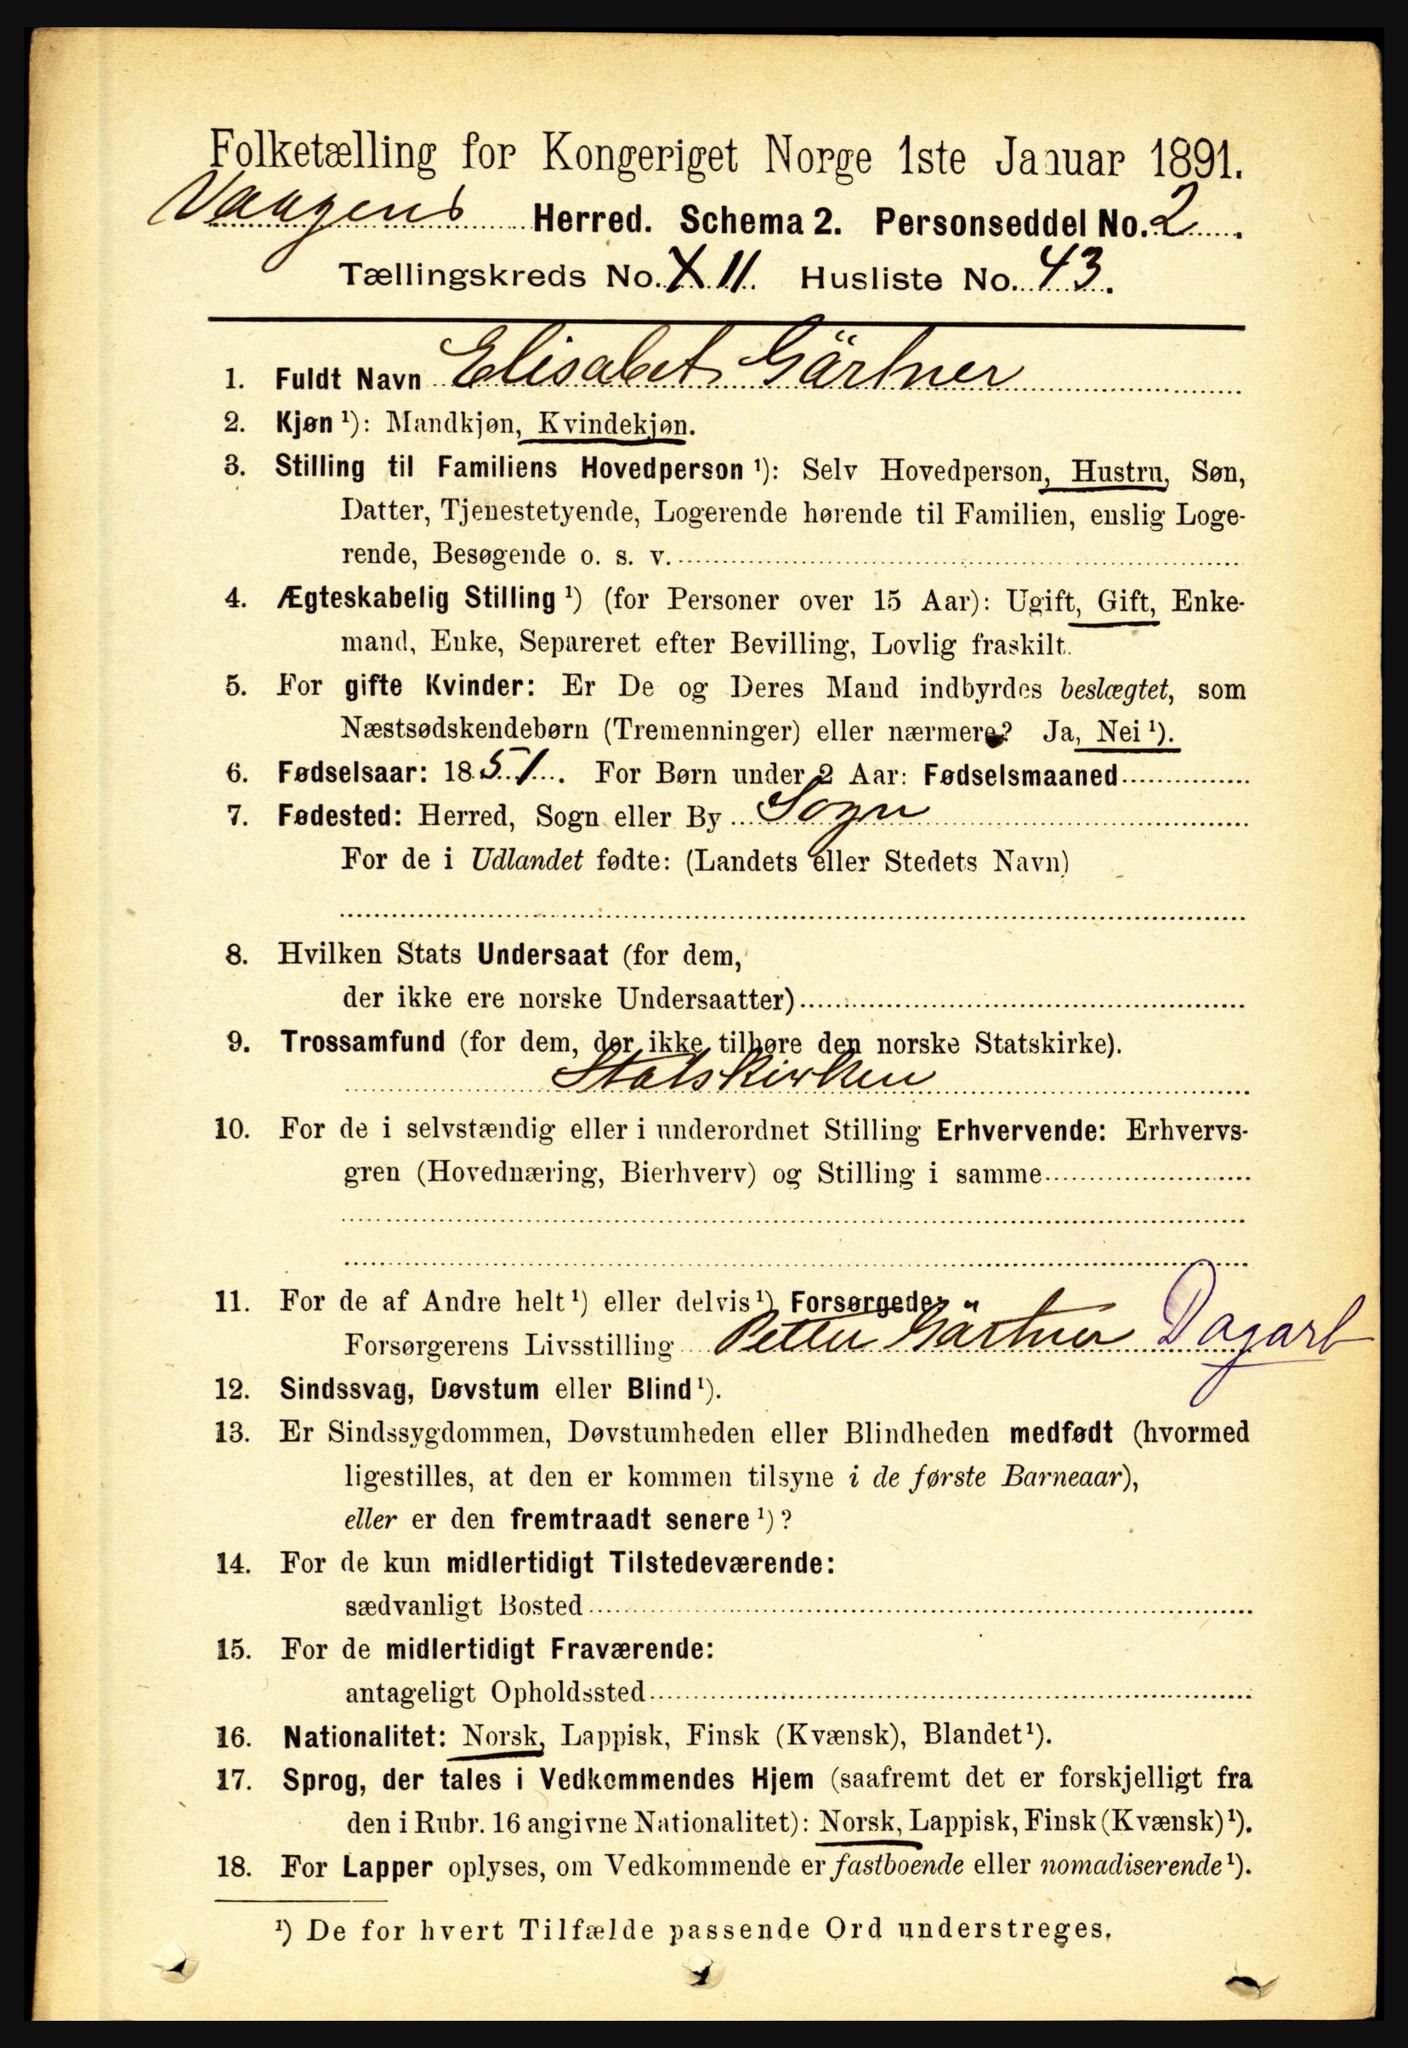 Folketælling for Kongeriget Norge 1ste Januar 1891.
Vaagens Herred. Schema 2. Personseddel No. 2.
Tællingskreds No. X 11. Husliste No. 43.
1. Fuldt Navn Elisabet Gärtner
2. Kjøn ¹): Mandkjøn, Kvindekjøn.
3. Stilling til Familiens Hovedperson ¹): Selv Hovedperson, Hustru, Søn,
Datter, Tjenestetyende, Logerende hørende til Familien, enslig Loge-
rende, Besøgende o. s. v.
4. Ægteskabelig Stilling ¹) (for Personer over 15 Aar): Ugift, Gift, Enke-
mand, Enke, Separeret efter Bevilling, Lovlig fraskilt.
5. For gifte Kvinder: Er De og Deres Mand indbyrdes beslægtet, som
Næstsødskendebørn (Tremenninger) eller nærmere? Ja, Nei ¹).
6. Fødselsaar: 1851. For Børn under 2 Aar: Fødselsmaaned
7. Fødested: Herred, Sogn eller By Sogn
For de i Udlandet fødte: (Landets eller Stedets Navn)
8. Hvilken Stats Undersaat (for dem,
der ikke ere norske Undersaatter)
9. Trossamfund (for dem, der ikke tilhøre den norske Statskirke).
Statskirken
10. For de i selvstændig eller i underordnet Stilling Erhvervende: Erhvervs-
gren (Hovednæring, Bierhverv) og Stilling i samme
11. For de af Andre helt ¹) eller delvis ¹) Forsørgede:
Forsørgerens Livsstilling Petter Gärtner Dagarb
12. Sindssvag, Døvstum eller Blind ¹).
13. Er Sindssygdommen, Døvstumheden eller Blindheden medfødt (hvormed
ligestilles, at den er kommen tilsyne i de første Barneaar),
eller er den fremtraadt senere ¹)?
14. For de kun midlertidigt Tilstedeværende:
sædvanligt Bosted
15. For de midlertidigt Fraværende:
antageligt Opholdssted
16. Nationalitet: Norsk, Lappisk, Finsk (Kvænsk), Blandet ¹).
17. Sprog, der tales i Vedkommendes Hjem (saafremt det er forskjelligt fra
den i Rubr. 16 angivne Nationalitet): Norsk, Lappisk, Finsk (Kvænsk) ¹).
18. For Lapper oplyses, om Vedkommende er fastboende eller nomadiserende ¹).
¹) De for hvert Tilfælde passende Ord understreges.